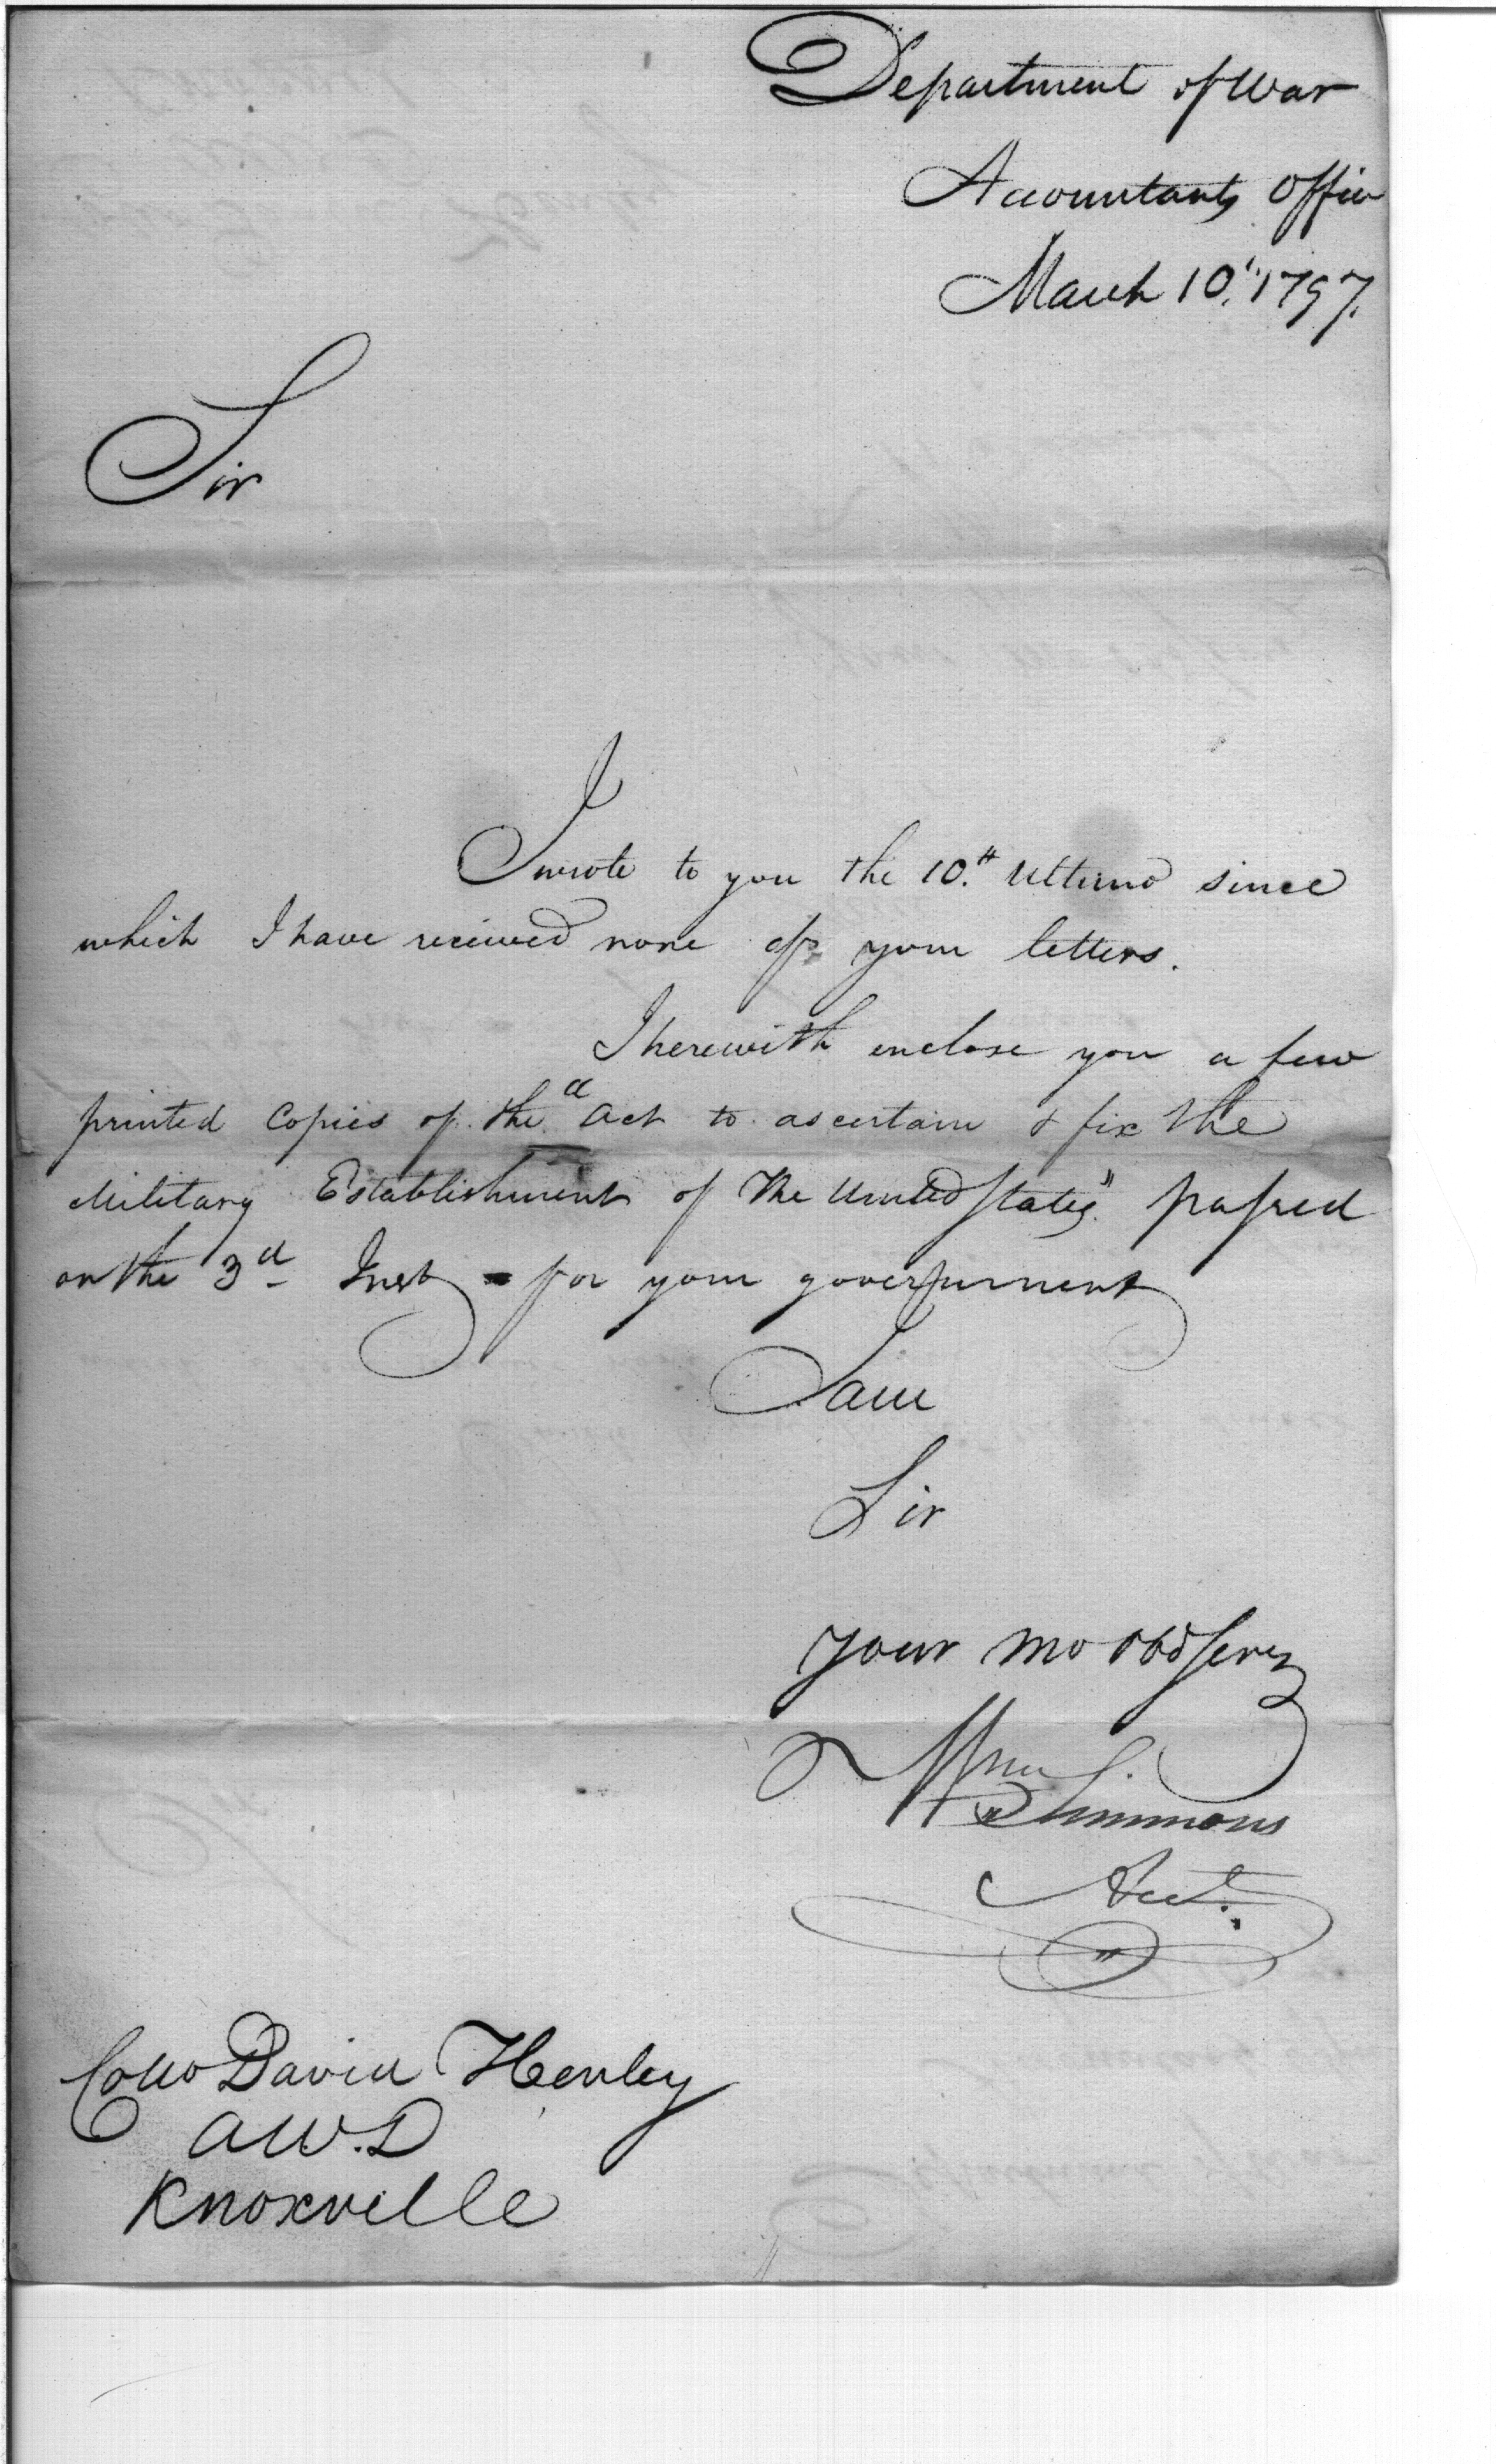 Department of War
Accountants Office
March 10th 1797.
Sir
I wrote to you the 10th Ultimo since
which I have received none of your letters.
I herewith enclose you a few
printed Copies of the "Act to ascertain & fix the
Military Establishment of the United States" passed
on the 3d Inst - for your government
I am
Sir
your mo obd Servt
Wm Simmons
Acct.
Collo David Henley
AW.D
Knoxville